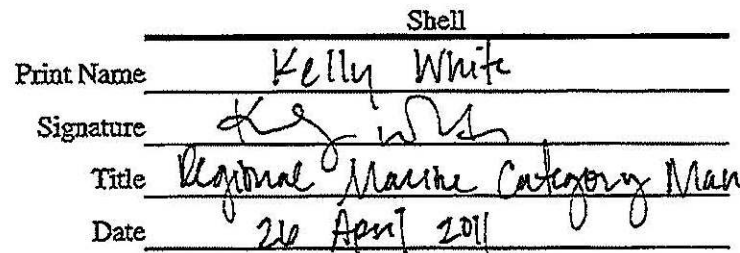 Shell
Print Name Kelly White
Signature
Title Regional Marine Category Man
Date 26 April 2011